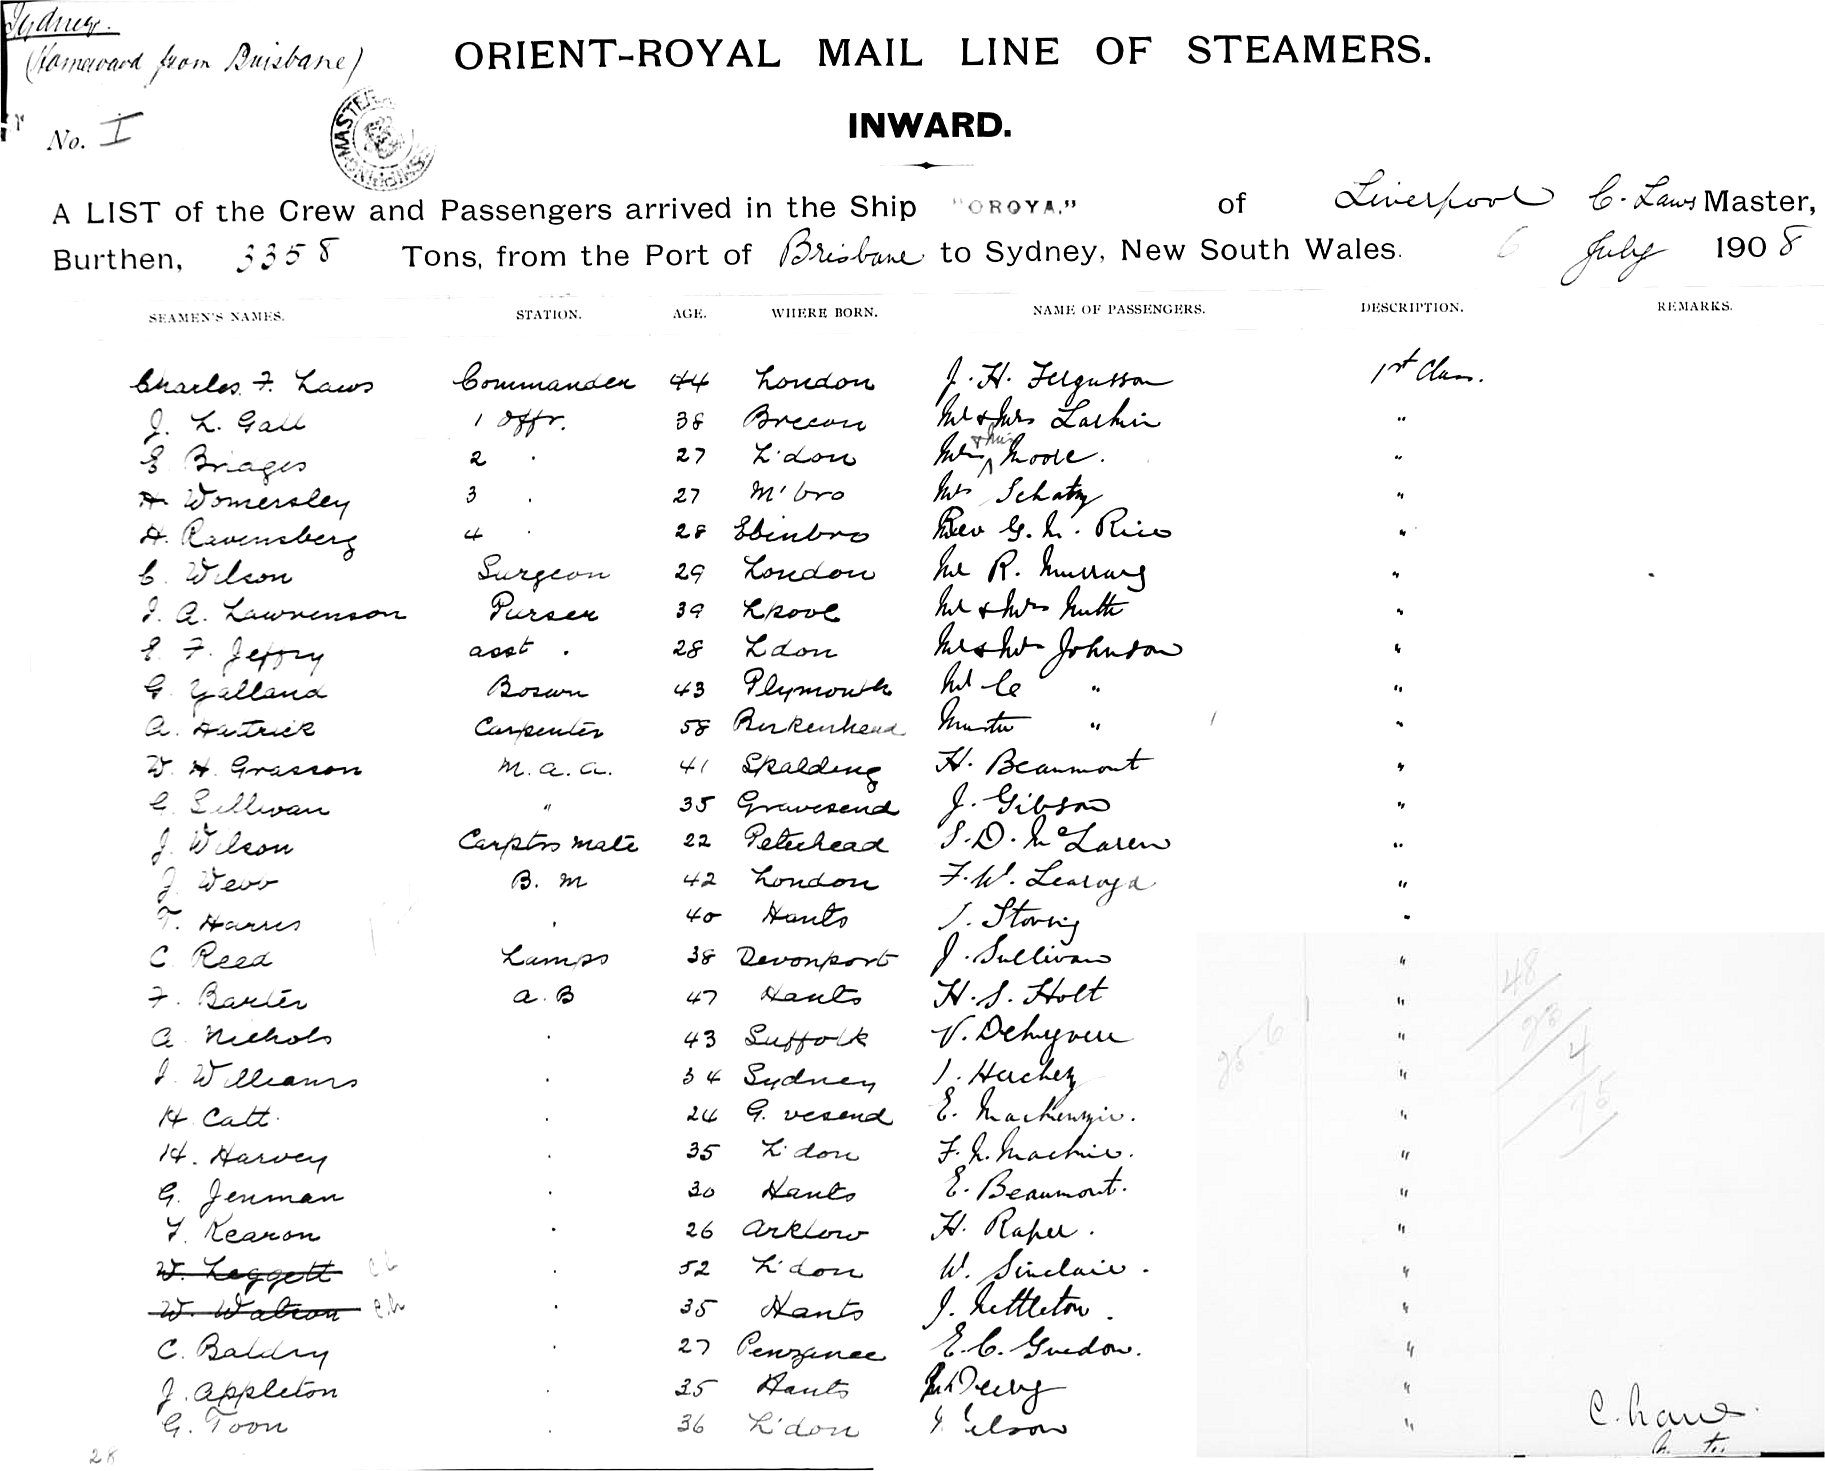 Sydney.
(Homeward from Brisbane)
ORIENT-ROYAL MAIL LINE OF STEAMERS.
INWARD.
No. I
A LIST of the Crew and Passengers arrived in the Ship "OROYA." of Liverpool C. Laws Master,
Burthen, 3358 Tons, from the Port of Brisbane to Sydney, New South Wales. 6 July 1908
SEAMEN'S NAMES. STATION. AGE. WHERE BORN. NAME OF PASSENGERS. DESCRIPTION. REMARKS.
Charles. F. Laws Commander 44 London J. H. Fergusson 1st Class.
J. L. Gall 1 Offr. 38 Brecon Mr & Mrs Larkin "
E Bridges 2 . 27 L'don & Miss Moore. "
H Womersley 3 . 27 M'bro Mrs Schatz "
H. Ravensberg 4 . 28 Edinbro Rev G. N. Rice "
C. Wilson Surgeon 29 London Mr R. Murray "
J. A. Lawrenson Purser 39 Lpool Mr & Mrs "
E. F. Jeffry asst . 28 Ldon Mr & Mrs Johnson "
G. Yalland Bosun 43 Plymouth Mr Ce " "
A. Hatrick Carpenter 58 Birkenhead Master " "
W. H. Grasson M.a.a. 41 Spalding H. Beaumont "
G. Sullivan " 35 Gravesend J. Gibson "
J. Wilson Carptrs mate 22 Peterhead S. D. McLaren "
J Webb B. M 42 London F. W. Learoyd "
T. Harris . 40 Hants J. "
C. Reed Lamps 38 Devonport J. Sullivan "
F. Baxter a.B 47 Hants H. S. Holt "
A. Nichols . 43 Suffolk V. "
J. Williams . 34 Sydney J. "
H. Catt . 24 G. vesend E. Mackenzie. "
H. Harvey . 35 L'don F. N. Mackie. "
G. Jenman . 30 Hants E. Beaumont. "
F. Kearon . 26 Arklow H. Raper. "
W. Leggett . 52 L'don W. Sinclair. "
W. Watson . 35 Hants J. Nettleton. "
C. Baldry . 27 Penzance E. C. "
J. Appleton . 35 Hants "
G. Toon . 36 L'don "
28
25.6
48
23
4
75
C. Laws